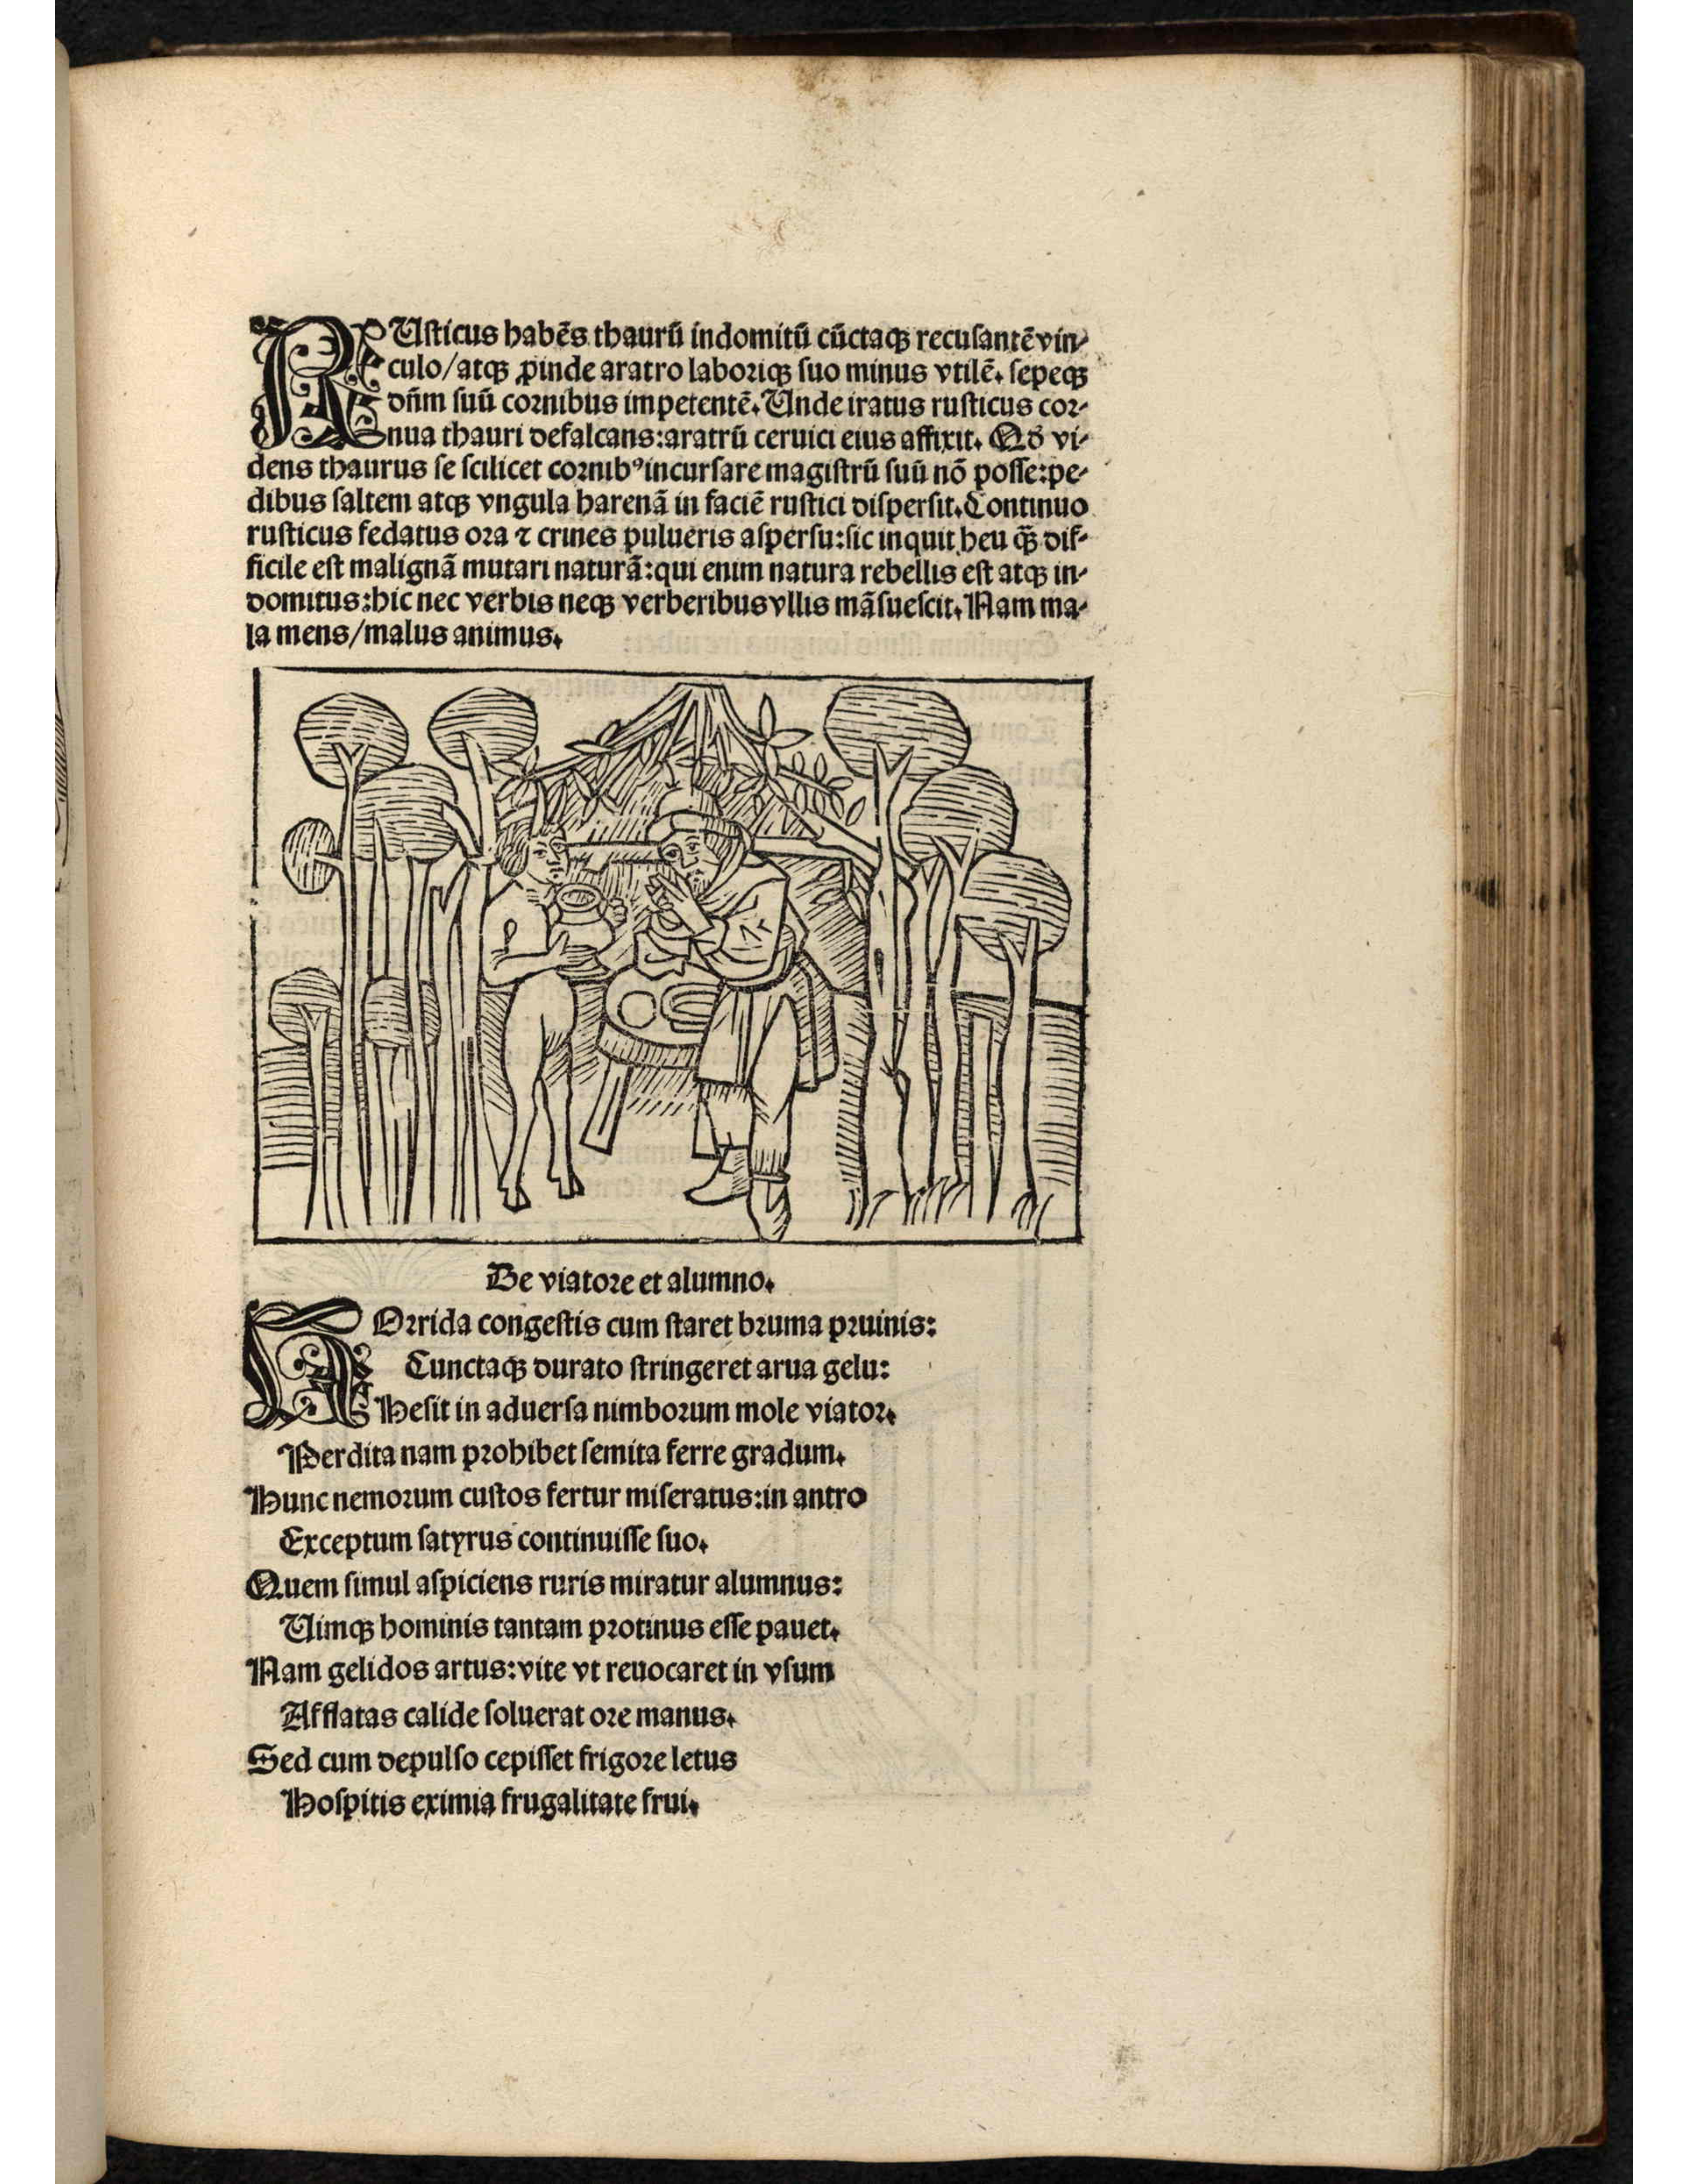 RUsticus habēs thaurū indomitū cūctaqꝫ recusantē vin-
culo/atqꝫ ꝓinde aratro laboriqꝫ suo minus vtilē. sepeqꝫ
dn̄m suū cornibus impetentē. Unde iratus rusticus cor-
nua thauri defalcans: aratrū ceruici eius affixit. Qd̄ vi-
dens thaurus se scilicet cornibꝰ incursare magistrū suū nō posse: pe-
dibus saltem atqꝫ vngula harenā in faciē rustici dispersit. Continuo
rusticus fedatus ora ⁊ crines pulueris aspersu: sic inquit heu qꝫ̄ dif-
ficile est malignā mutari naturā: qui enim natura rebellis est atqꝫ in-
domitus: hic nec verbis neqꝫ verberibus vllis māsuescit. Nam ma-
la mens/malus animus.
De viatore et alumno.
HOrrida congestis cum staret bruma pruinis:
Cunctaqꝫ durato stringeret arua gelu:
Hesit in aduersa nimborum mole viator.
Perdita nam prohibet semita ferre gradum.
Hunc nemorum custos fertur miseratus: in antro
Exceptum satyrus continuisse suo.
Quem simul aspiciens ruris miratur alumnus:
Uimqꝫ hominis tantam protinus esse pauet.
Nam gelidos artus: vite vt reuocaret in vsum
Afflatas calide soluerat ore manus.
Sed cum depulso cepisset frigore letus
Hospitis eximia frugalitate frui.